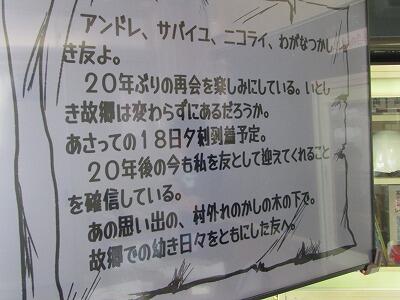 アンドレ、サバイユ、ニコライ、わがなつかし
き友よ。
２０年ぶりの再会を楽しみにしている。いとし
き故郷は変わらずにあるだろうか。
あさっての１８日夕刻到着予定。
２０年後の今も私を友として迎えてくれること
を確信している。
あの思い出の、村外れのかしの木の下で。
故郷での幼き日々をともにした友へ。